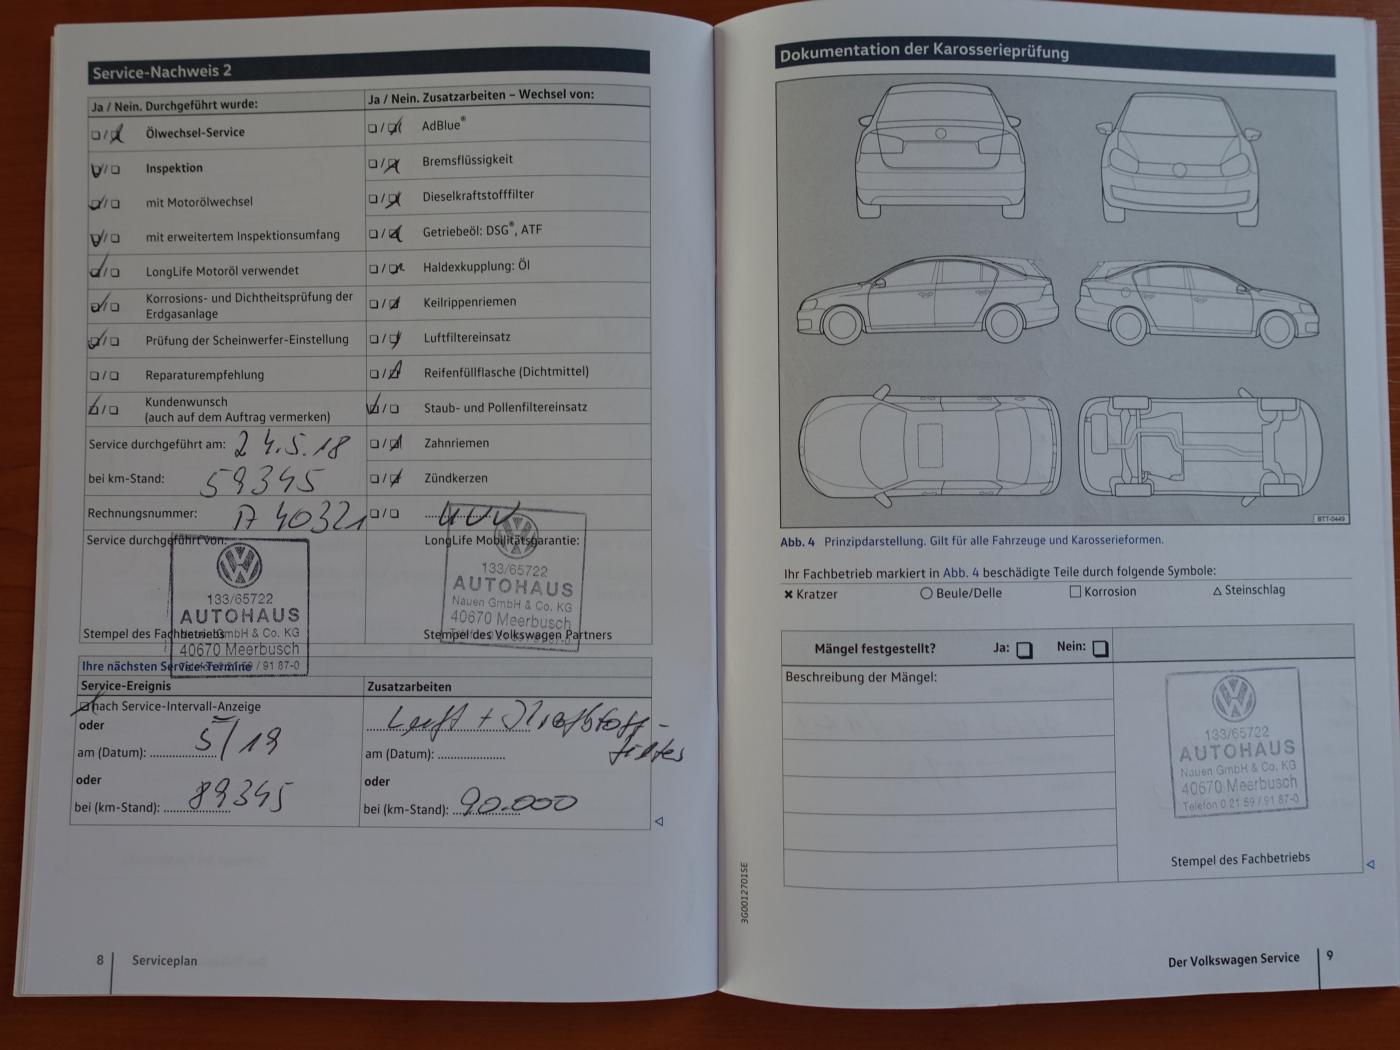 Service-Nachweis 2
Ja / Nein. Durchgeführt wurde:
Ölwechsel-Service
Inspektion
mit Motorölwechsel
mit erweitertem Inspektionsumfang
LongLife Motoröl verwendet
Korrosions- und Dichtheitsprüfung der
Erdgasanlage
Prüfung der Scheinwerfer-Einstellung
Reparaturempfehlung
Kundenwunsch
(auch auf dem Auftrag vermerken)
Service durchgeführt am: 24.5.18
bei km-Stand: 59345
Rechnungsnummer: A 40321
Service durchgeführt von:
133/65722
AUTOHAUS
Nauen GmbH & Co. KG
40670 Meerbusch
Telefon 0 21 59 / 91 87-0
Stempel des Fachbetriebs
Ja / Nein. Zusatzarbeiten – Wechsel von:
AdBlue®
Bremsflüssigkeit
Dieselkraftstofffilter
Getriebeöl: DSG®, ATF
Haldexkupplung: Öl
Keilrippenriemen
Luftfiltereinsatz
Reifenfüllflasche (Dichtmittel)
Staub- und Pollenfiltereinsatz
Zahnriemen
Zündkerzen
LongLife Mobilitätsgarantie:
133/65722
AUTOHAUS
Nauen GmbH & Co. KG
40670 Meerbusch
Stempel des Volkswagen Partners
Ihre nächsten Service-Termine
Service-Ereignis
nach Service-Intervall-Anzeige
oder
am (Datum): 5/19
oder
bei (km-Stand): 89345
Zusatzarbeiten
Luft + Kraftstoff-
filter
am (Datum):
oder
bei (km-Stand): 90.000
8 Serviceplan
Dokumentation der Karosserieprüfung
BTT-0449
Abb. 4 Prinzipdarstellung. Gilt für alle Fahrzeuge und Karosserieformen.
Ihr Fachbetrieb markiert in Abb. 4 beschädigte Teile durch folgende Symbole:
✖ Kratzer ○ Beule/Delle □ Korrosion △ Steinschlag
Mängel festgestellt? Ja: Nein:
Beschreibung der Mängel:
133/65722
AUTOHAUS
Nauen GmbH & Co. KG
40670 Meerbusch
Telefon 0 21 59 / 91 87-0
Stempel des Fachbetriebs
3G0012701SE
Der Volkswagen Service 9